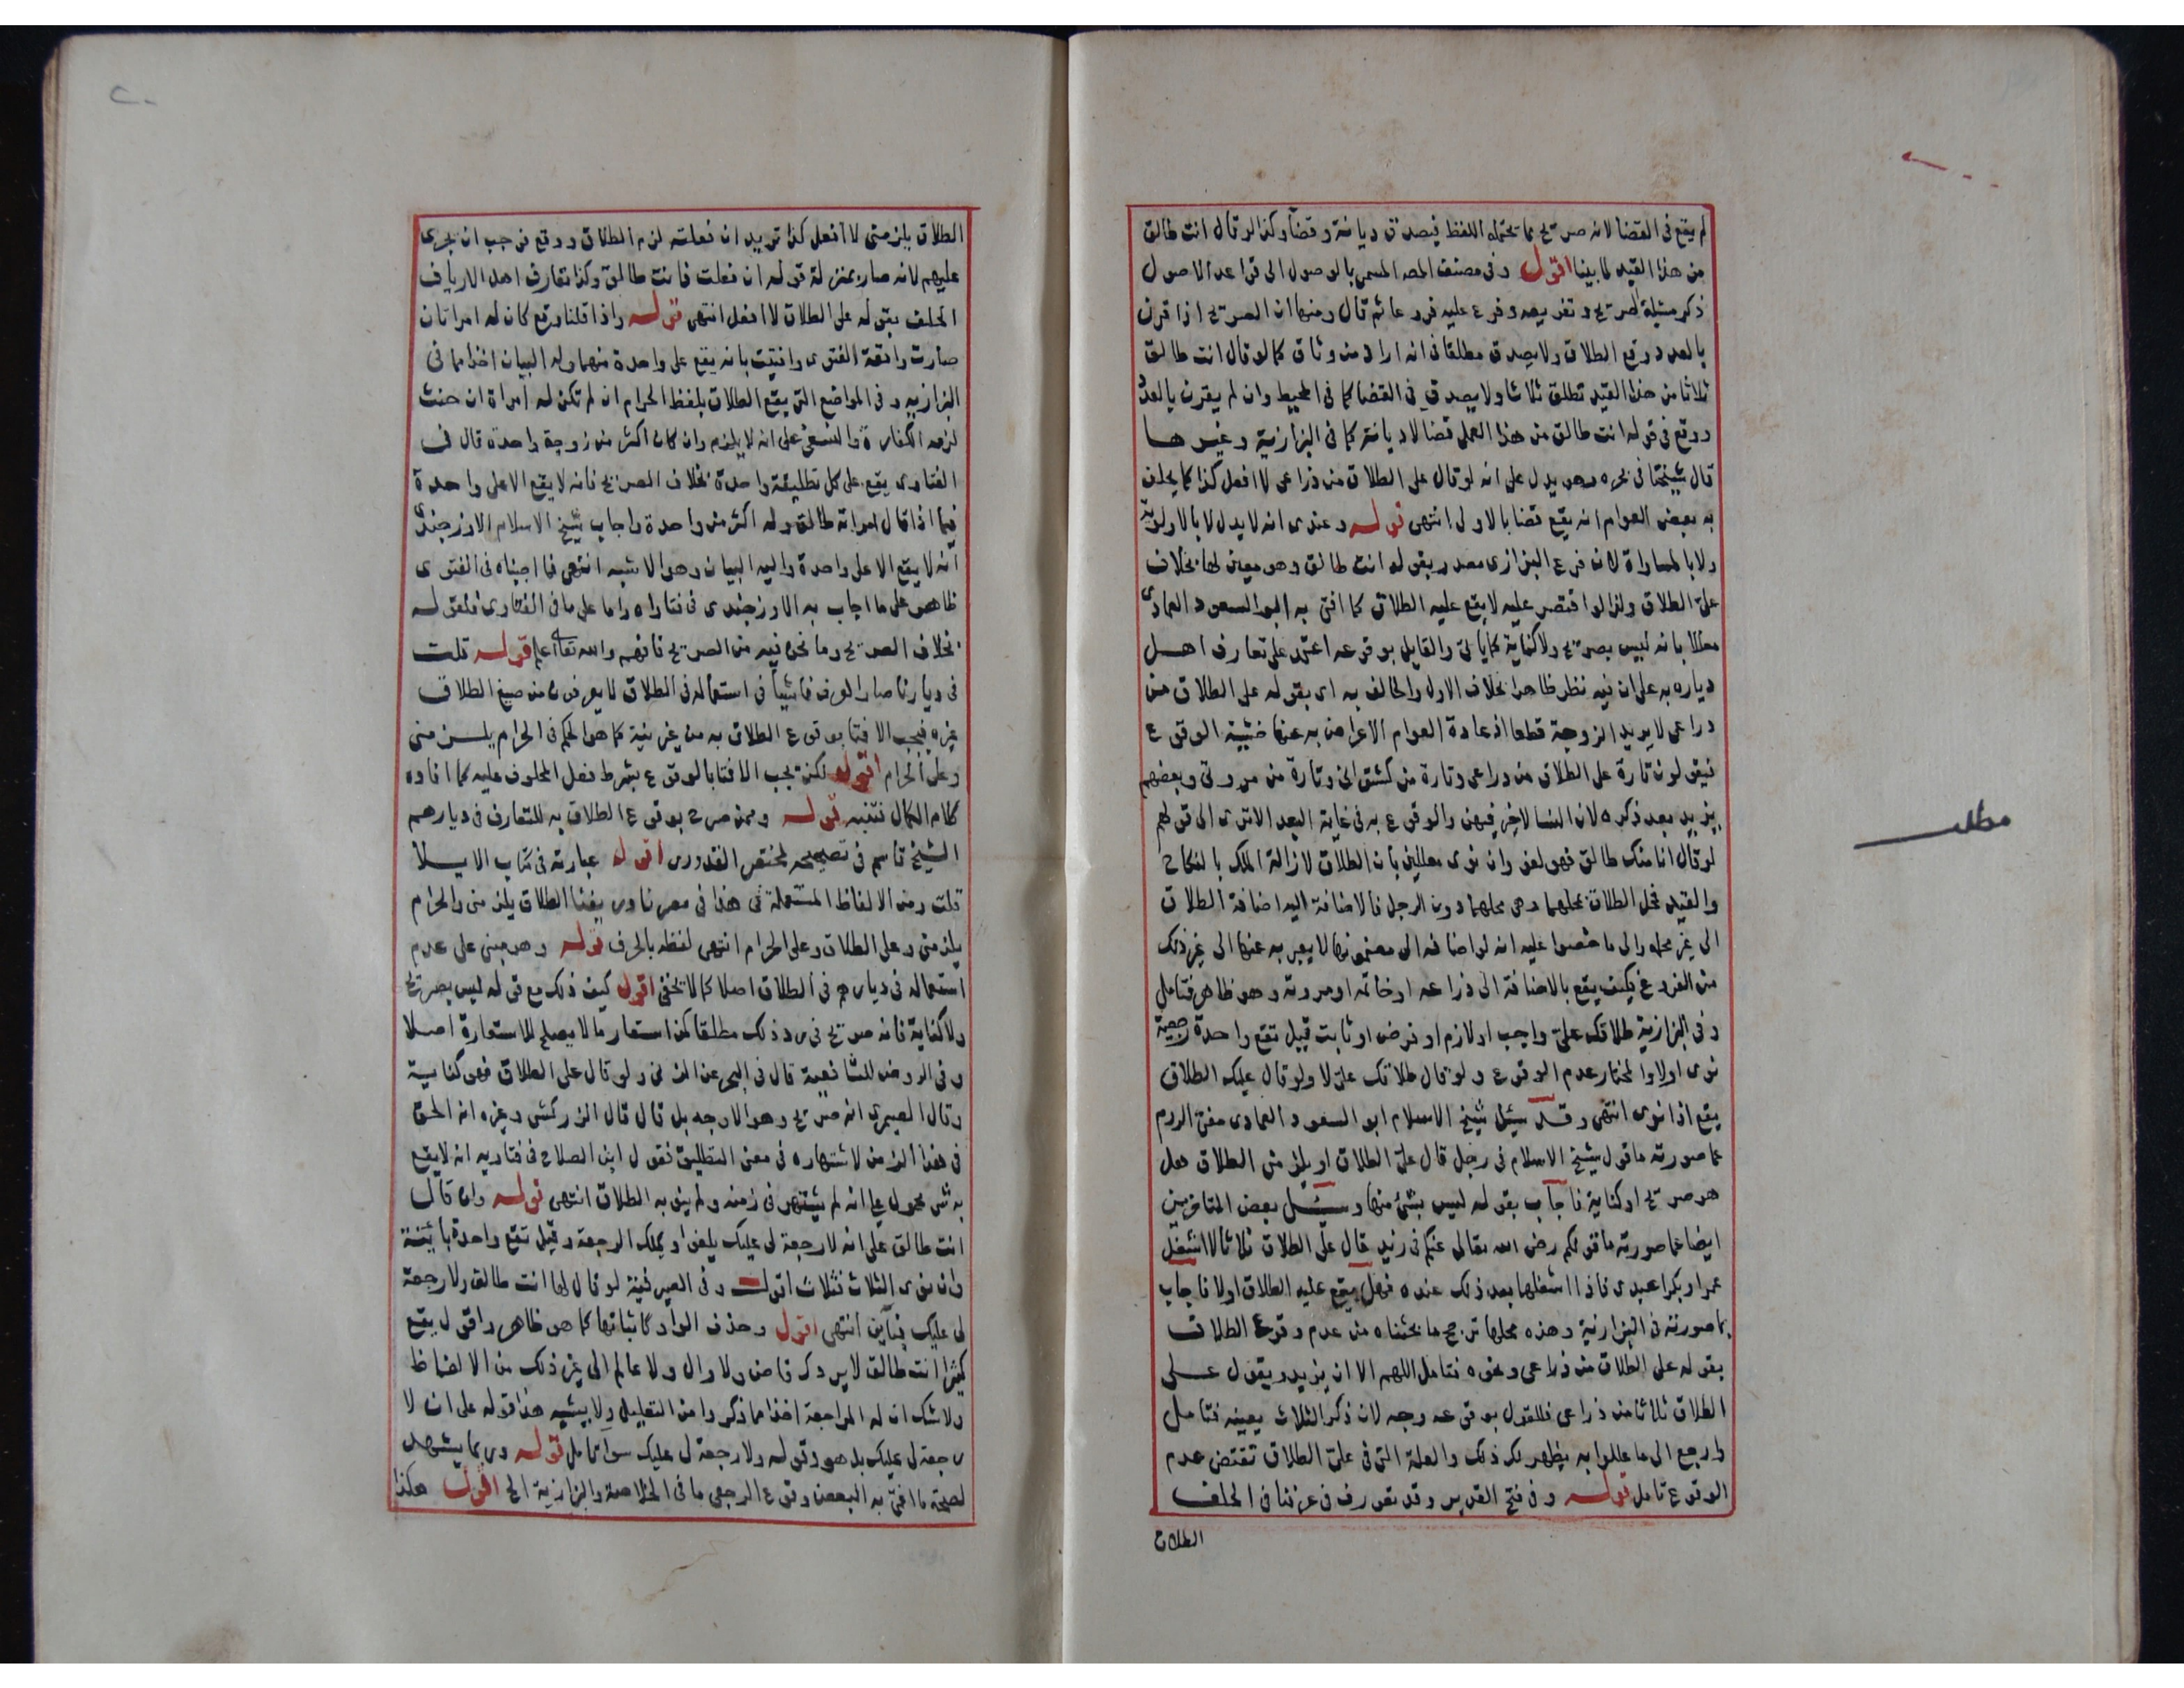 لم يقع في القضا لانه صريح مما يحتمله اللفظ فيصدق ديانة وقضأ وكذا لو قال انت طالق
من هذا القيد لما بينا اقول وفي مصنف المصـ المسمى بالوصول الى قواعد الاصول
ذكر مسئلة الصريح وتعريفه وفرع عليه فروعا ثم قال ومنها ان الصريح اذا قرن
بالعدد وقع الطلاق ولا يصدق مطلقا في انه اراد من وثاق كما لو قال انت طالق
ثلاثا من هذا القيد تطلق ثلاثا ولا يصدق في القضا كما في المحيط وان لم يقترن بالعدد
ووقع في قوله انت طالق من هذا العمل قضا لا ديانة كما في البزازية وغيرها
قال شيخنا في بحره وهو يدل على انه لو قال على الطلاق من ذراعى لا افعل كذا كما يحلف
به بعض العوام انه يقع قضا بالاولى انتهى قوله وعندى انه لا يدل لا بالاولوية
ولا بالمساواة لان فرع البزازى مصدر بقوله انت طالق وهو معين لها بخلاف
على الطلاق ولذا لو اقتصر عليه لا يقع عليه الطلاق كما افتى به ابو السعود العمادى
معللا بانه ليس بصريح ولا كناية والقايل بوقوعه اعتمد على تعارف اهل
دياره به على ان فيه نظر ظاهرا بخلاف الاول والحالف به اى بقوله على الطلاق من
ذراعى لا يريد الزوجة قطعا اذ عادة العوام الاعراض به عنها خشية الوقوع
فيقولون تارة على الطلاق من ذراعى وتارة من كشتوانى وتارة من مروتى وبعضهم
يزيد بعد ذكره لان النسا لا خير فيهن والوقوع به في غاية البعد الا ترى الى قولهم
لو قال انا منك طالق فهو لغو وان نوى معللين بان الطلاق لازالة الملك بالنكاح
والقيد فمحل الطلاق محلهما وهى محلهما دون الرجل فالاضافة اليه اضافة الطلاق
الى غير محله والى ما نصوا عليه انه لو اضافه الى عضو منها لا يعبر به عنها الى غير ذلك
من الفروع فكيف يقع بالاضافة الى ذراعه او خاتمه او مروته وهو ظاهر فتامل
وفي البزازية طلاقك على واجب او لازم او فرض او ثابت قيل تقع واحدة رجعية
نوى او لا والمختار عدم الوقوع ولو قال طلاقك على لا ولو قال عليك الطلاق
يقع اذا نوى انتهى وقد سئل شيخ الاسلام ابو السعود العمادى مفتى الروم
عما صورته ما قول شيخ الاسلام في رجل قال على الطلاق او يلزمنى الطلاق هل
هو صريح او كناية فاجاب بقوله ليس بشئ منها وسئل بعض المتاخرين
ايضا عما صورته ما قولكم رضى الله تعالى عنكم في زيد قال على الطلاق ثلاثا لا اشغل
عمرا وبكرا عبدى فاذا اشغلها بعد ذلك عنده فهل يقع عليه الطلاق او لا فاجاب
بما صورته في البزازية وهذه محلها ترجح ما بحثناه من عدم وقوع الطلاق
بقوله على الطلاق من ذراعى ونحوه فتامل اللهم الا ان يزيد ويقول على
الطلاق ثلاثا من ذراعى فللقول بوقوعه وجه لان ذكر الثلاث يعينه فتامل
وارجع الى ما عللوا به يظهر لك ذلك والعلة التى في على الطلاق تقتضى عدم
الوقوع تامل قوله وفي فتح القدير وقد تعورف في عرفنا في الحلف
الطلاق
مطلب
الطلاق يلزمنى لا افعل كذا تريد ان فعلته لزم الطلاق ووقع فوجب ان يجرى
عليهم لانه صار بمنزلة قوله ان فعلت فانت طالق وكذا تعارف اهل الارياف
الحلف بقوله على الطلاق لا افعل انتهى قوله واذا قلنا وقع كان له امراتان
صارت واقعة الفتوى وافتيت بانه يقع على واحدة منهما وله البيان اخذا مما في
البزازيه وفي المواضع التى يقع الطلاق بلفظ الحرام ان لم تكن له امراة ان حنث
لزمه الكفارة والنسفى على انه لا يلزم وان كان اكثر من زوجة واحدة قال في
الفتاوى يقع على كل تطليقة واحدة بخلاف الصريح فانه لا يقع الا على واحدة
فيما اذا قال امراته طالق وله اكثر من واحدة واجاب شيخ الاسلام الاوزجندى
انه لا يقع الا على واحدة واليه البيان وهو الاشبه انتهى فما اجبناه في الفتوى
ظاهر على ما اجاب به الاوزجندى في فتاواه واما على ما في الفتاوى فلقوله
بخلاف الصريح وما نحن فيه من الصريح فافهم والله تعالى اعلم قوله قلت
في ديارنا صار العرف فاشيا في استعماله في الطلاق لا يعرفون من صيغ الطلاق
غيره فيجب الافتا بوقوع الطلاق به من غير نية كما هو الحكم في الحرام يلزمنى
وعلى الحرام اقول لكن يجب الافتا بالوقوع بشرط فعل المحلوف عليه كما افاده
كلام الكمال فتنبه قوله وممن صرح بوقوع الطلاق به للتعارف في ديارهم
الشيخ قاسم في تصحيحه لمختصر القدورى اقول عبارته في كتاب الايلا
قلت ومن الالفاظ المستعملة في هذا في مصرنا وريفنا الطلاق يلزمنى والحرام
يلزمنى وعلى الطلاق وعلى الحرام انتهى لفظه بالحرف قوله وهو مبنى على عدم
استعماله في ديارهم في الطلاق اصلا كما لا يخفى اقول كيف ذلك مع قوله ليس بصريح
ولا كناية فانه صريح في رد ذلك مطلقا كمن استعار ما لا يصلح للاستعارة اصلا
وفي الروض للشافعية قال في البحر عن المزنى ولو قال على الطلاق فهو كناية
وقال الصيمرى انه صريح وهو الاوجه بل قال قال الزركشى وغيره انه الحق
في هذا الزمن لاشتهاره في معنى التطليق فقول ابن الصلاح في فتاويه انه لا يقع
به شى محمول على انه لم يشتهر في زمنه ولم ينو به الطلاق انتهى قوله وان قال
انت طالق على انه لا رجعة لى عليك يلغو ويملك الرجعة وقيل تقع واحدة باينة
وان نوى الثلاث فثلاث اقول وفي الصيرفية لو قال لها انت طالق ولا رجعة
لى عليك فباين انتهى اقول وحذف الواو كاثباتها كما هو ظاهر واقول يقع
كثيرا انت طالق لا يردك قاض ولا وال ولا عالم الى غير ذلك من الالفاظ
ولا شك ان له المراجعة اخذا مما ذكروا من التعليل ولا يشبه هذا قوله على ان لا
رجعة لى عليك بل هو وقوله ولا رجعة لى عليك سوا تامل قوله ومما يشهد
لصحة ما افتى به البعض وقوع الرجعى ما في الخلاصة والبزازية الخ اقول هكذا